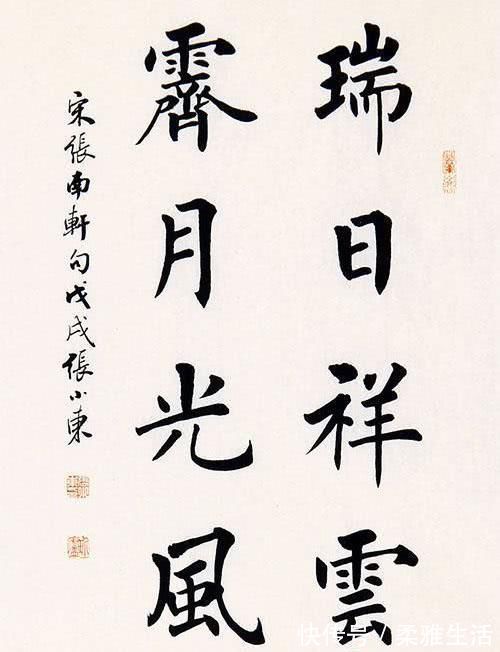 瑞日祥雲
霽月光風
宋張南軒句戊戌張小東
快传号/柔雅生活